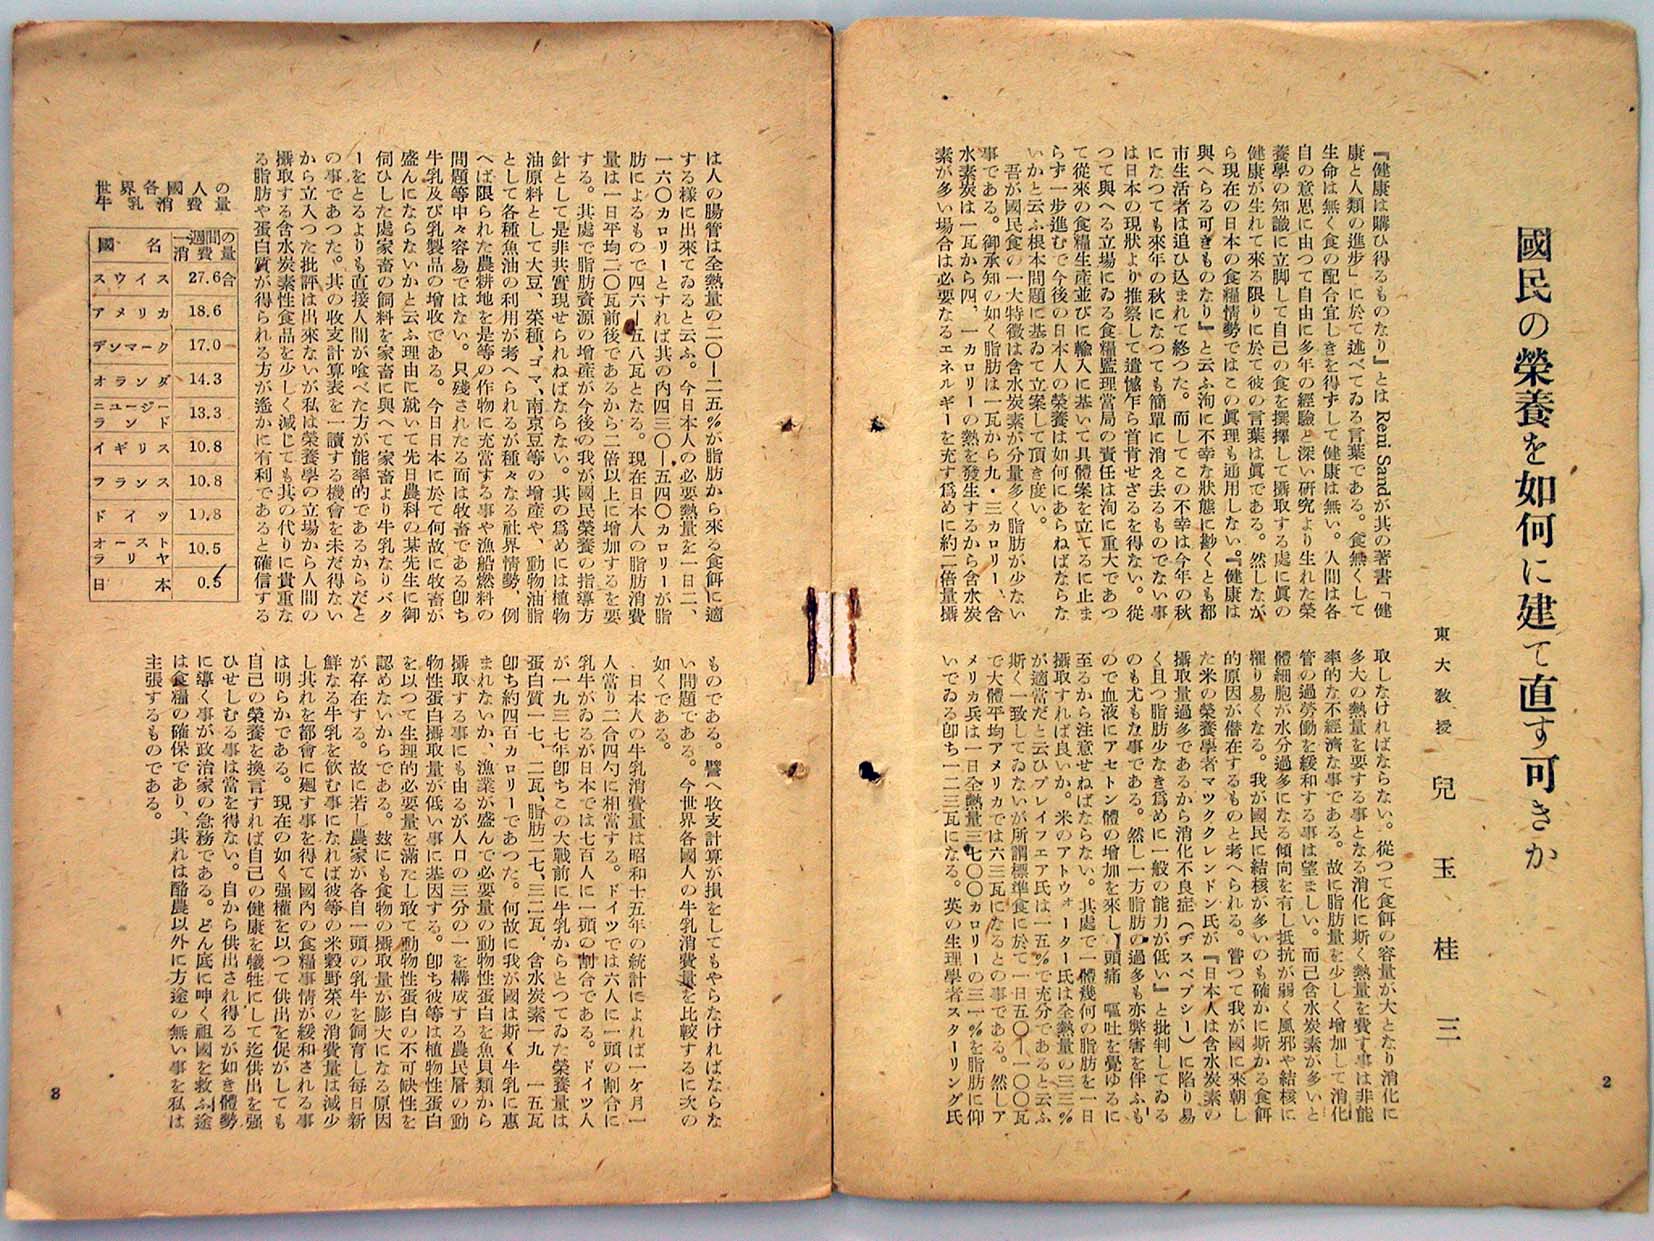 國民の榮養を如何に建て直す可きか
東大教授 兒玉桂三
『健康は購ひ得るものなり』とは René Sand が其の著書「健
康と人類の進步」に於て述べてゐる言葉である。食無くして
生命は無く食の配合宜しきを得ずして健康は無い。人間は各
自の意思に由つて自由に多年の經驗と深い硏究より生れた榮
養學の知識に立脚して自己の食を撰擇して攝取する處に眞の
健康が生れて來る限りに於て彼の言葉は眞である。然しなが
ら現在の日本の食糧情勢ではこの眞理も通用しない。『健康は
與へらる可きものなり』と云ふ洵に不幸な狀態に尠くとも都
市生活者は追ひ込まれて終つた。而してこの不幸は今年の秋
になつても來年の秋になつても簡單に消え去るものでない事
は日本の現狀より推察して遺憾乍ら首肯せざるを得ない。從
つて與へる立場にゐる食糧監理當局の責任は洵に重大であつ
て從來の食糧生產並びに輸入に基いて具體案を立てるに止ま
らず一步進むで今後の日本人の榮養は如何にあらねばならな
いかと云ふ根本問題に基ゐて立案して頂き度い。
吾が國民食の一大特徵は含水炭素が分量多く脂肪が少ない
事である。御承知の如く脂肪は一瓦から九・三カロリー、含
水素炭は一瓦から四、一カロリーの熱を發生するから含水炭
素が多い場合は必要なるエネルギーを充す爲めに約二倍量攝
取しなければならない。從つて食餌の容量が大となり消化に
多大の熱量を要する事となる消化に斯く熱量を費す事は非能
率的な不經濟な事である。故に脂肪量を少しく增加して消化
管の過勞働を緩和する事は望ましい。而已含水炭素が多いと
體細胞が水分過多になる傾向を有し抵抗が弱く風邪や結核に
罹り易くなる。我が國民に結核が多いのも確かに斯かる食餌
的原因が潛在するものと考へられる。嘗つて我が國に來朝し
た米の榮養學者マツククレンドン氏が『日本人は含水炭素の
攝取量過多であるから消化不良症(ヂスペプシー)に陷り易
く且つ脂肪少なき爲めに一般の能力が低い』と批判してゐる
のも尤もな事である。然し一方脂肪の過多も亦弊害を伴ふも
ので血液にアセトン體の增加を來し頭痛 嘔吐を覺ゆるに
至るから注意せねばならない。其處で一體幾何の脂肪を一日
攝取すれば良いか。米のアトウォーター氏は全熱量の三三%
が適當だと云ひプレイフェア氏は一五%で充分であると云ふ
斯く一致してゐないが所謂標準食に於て一日五〇—一〇〇瓦
で大體平均アメリカでは六三瓦になるとの事である。然しア
メリカ兵は一日全熱量三七〇〇カロリーの三一%を脂肪に仰
いでゐる卽ち一二三瓦になる。英の生理學者スターリング氏
2
は人の腸管は全熱量の二〇—二五%が脂肪から來る食餌に適
する樣に出來てゐると云ふ。今日本人の必要熱量を一日二、
一六〇カロリーとすれば其の內四三〇—五四〇カロリーが脂
肪によるもので四六—五八瓦となる。現在日本人の脂肪消費
量は一日平均二〇瓦前後であるから二倍以上に增加するを要
する。其處で脂肪資源の增產が今後の我が國民榮養の指導方
針として是非共實現せられねばならない。其の爲めには植物
油原料として大豆、菜種、ゴマ、南京豆等の增產や、動物油脂
として各種魚油の利用が考へられるが種々なる社界情勢、例
へば限られた農耕地を是等の作物に充當する事や漁船燃料の
問題等中々容易ではない。只殘されたる面は牧畜である卽ち
牛乳及び乳製品の增收である。今日日本に於て何故に牧畜が
盛んにならないかと云ふ理由に就いて先日農科の某先生に御
伺ひした處家畜の飼料を家畜に與へて家畜より牛乳なりバタ
ーをとるよりも直接人間が喰べた方が能率的であるからだと
の事であつた。其の收支計算表を一讀する機會を未だ得ない
から立入つた批評は出來ないが私は榮養學の立場から人間の
攝取する含水炭素性食品を少しく減じても其の代りに貴重な
る脂肪や蛋白質が得られる方が遙かに有利であると確信する
世界各國人の
牛乳消費量
國名 一週間の消費量
スウイス 27.6合
アメリカ 18.6
デンマーク 17.0
オランダ 14.3
ニュージーランド 13.3
イギリス 10.8
フランス 10.8
ドイツ 10.8
オーストラリヤ 10.5
日本 0.5
ものである。譬へ收支計算が損をしてもやらなければならな
い問題である。今世界各國人の牛乳消費量を比較するに次の
如くである。
日本人の牛乳消費量は昭和十五年の統計によれば一ヶ月一
人當り二合四勺に相當する。ドイツでは六人に一頭の割合に
乳牛がゐるが日本では七百人に一頭の割合である。ドイツ人
が一九三七年卽ちこの大戰前に牛乳からとつてゐた榮養量は
蛋白質一七、二瓦、脂肪二七、三二瓦、含水炭素一九 一五瓦
卽ち約四百カロリーであつた。何故に我が國は斯く牛乳に惠
まれないか、漁業が盛んで必要量の動物性蛋白を魚貝類から
攝取する事にも由るが人口の三分の一を構成する農民層の動
物性蛋白攝取量が低い事に基因する。卽ち彼等は植物性蛋白
を以つて生理的必要量を滿たし敢て動物性蛋白の不可缺性を
認めないからである。玆にも食物の攝取量が膨大になる原因
が存在する。故に若し農家が各自一頭の乳牛を飼育し每日新
鮮なる牛乳を飮む事になれば彼等の米穀野菜の消費量は減少
し其れを都會に廻す事を得て國內の食糧事情が緩和される事
は明らかである。現在の如く强權を以つて供出を促がしても
自己の榮養を換言すれば自己の健康を犠牲にして迄供出を强
ひせしむる事は當を得ない。自から供出され得るが如き體勢
に導く事が政治家の急務である。どん底に呻く祖國を救ふ途
は食糧の確保であり、其れは酪農以外に方途の無い事を私は
主張するものである。
3